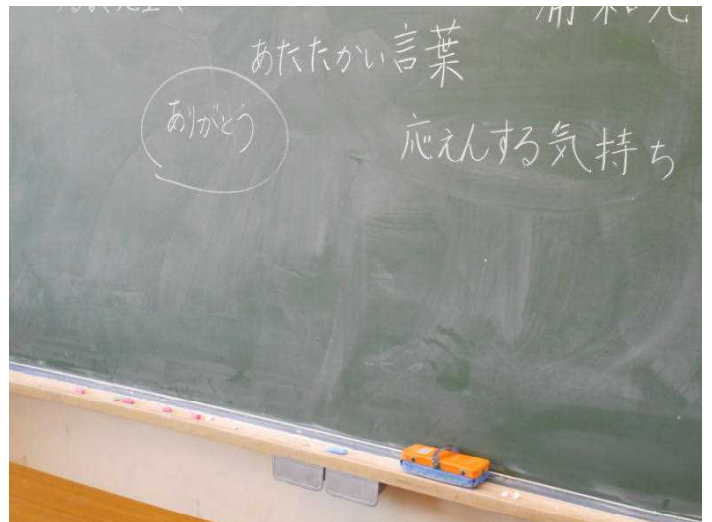 あたたかい言葉
ありがとう
応えんする気持ち